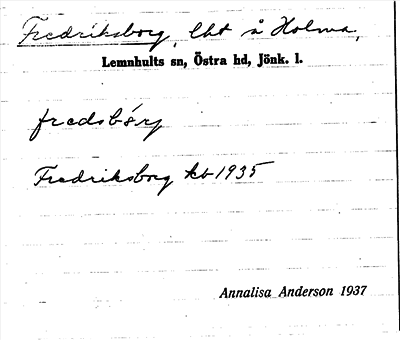 Fredriksborg, lht å Holma,
Lemnhults sn, Östra hd, Jönk. l.
fredsbörj
Fredriksborg kb 1935
Annalisa Anderson 1937